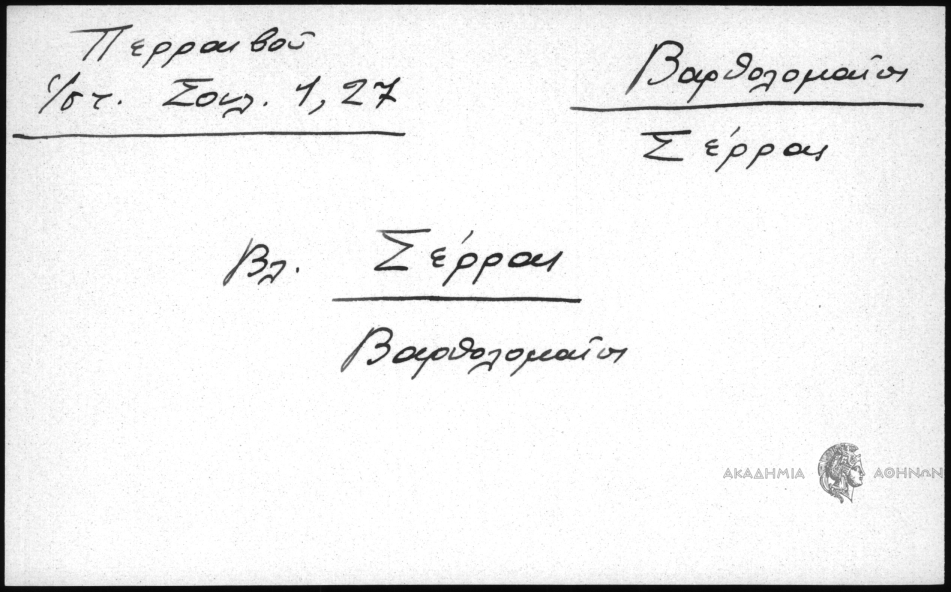 Περραιβού
Ἱστ. Σουλ. 1, 27
Βαρθολομαῖοι
Σέρραι
Βλ. Σέρραι
Βαρθολομαῖοι
ΑΚΑΔΗΜΙΑ ΑΘΗΝΩΝ